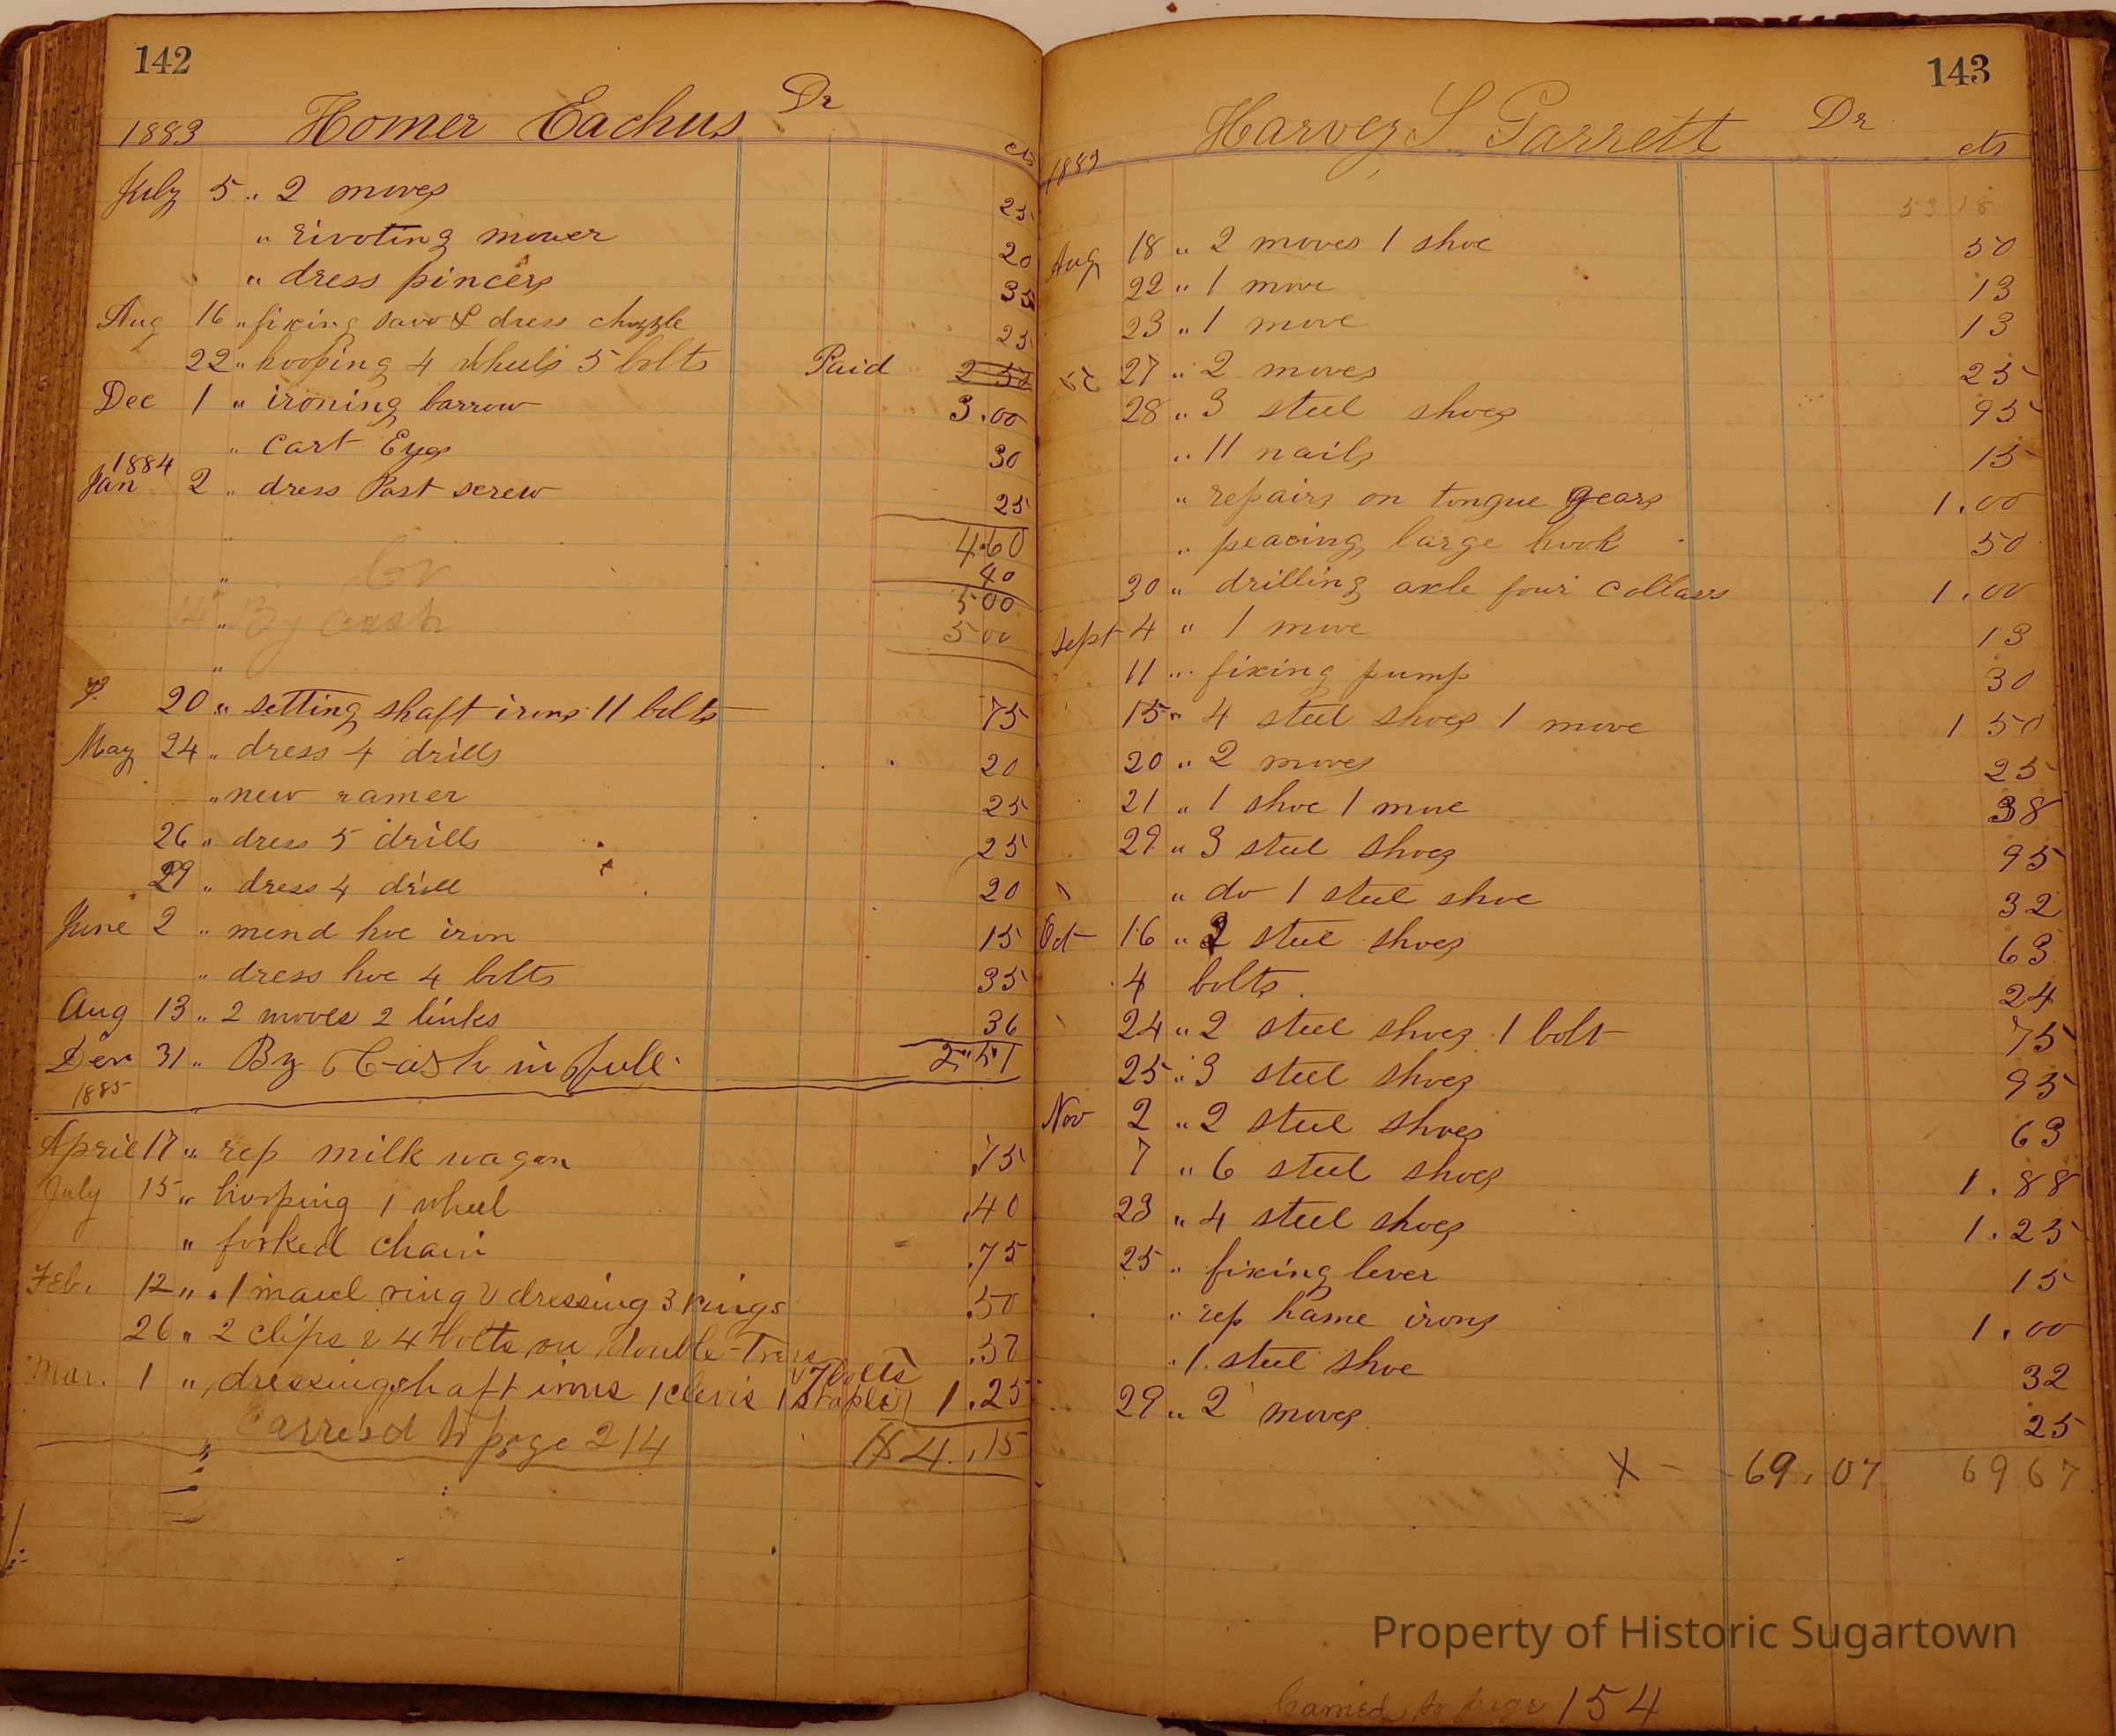 142
Homer Eachus Dr
1883 cts
July 5 " 2 moves 25
" rivoting mower 20
" dress pincers 35
Aug 16 " fixing saw & dress chizzle 25
22 " hooping 4 wheels 5 bolts Paid 2 50
Dec 1 " ironing barrow 3.00
" Cart Eyes 30
1884
Jan 2 " dress Post screw 25
" 4.60
" Cr 40
5 00
14 " By cash 5 00
"
20 " setting shaft irons 11 bolts 75
May 24 " dress 4 drills 20
" new ramer 25
26 " dress 5 drills 25
29 " dress 4 drill 20
June 2 " mend hoe iron 15
" dress hoe 4 bolts 35
Aug 13 " 2 moves 2 links 36
Dec 31 " By Cash in full 2"51
1885
April 17 " rep milk wagon .75
July 15 " hooping 1 wheel .40
" forked chain .75
Feb. 12 " 1 maul ring & dressing 3 rings .50
26 " 2 clips & 4 bolts on double-Trees
Mar. 1 " dressing shaft irons 1 clevis 1 staple & 7 bolts 1.25
Carried to page 214 $4.15
143
Harvey S Garrett Dr
1883 cts
53 18
Aug 18 " 2 moves 1 shoe 50
22 " 1 move 13
23 " 1 move 13
27 " 2 moves 25
28 " 3 steel shoes 95
" 11 nails 15
" repairs on tongue gears 1.00
" peacing large hook 50
30 " drilling axle four collars 1.00
Sept 4 " 1 move 13
11 " fixing pump 30
15 " 4 steel shoes 1 move 1 50
20 " 2 moves 25
21 " 1 shoe 1 move 38
29 " 3 steel shoes 95
" do 1 steel shoe 32
Oct 16 " 2 steel shoes 63
4 bolts 24
24 " 2 steel shoes 1 bolt 75
25 " 3 steel shoes 95
Nov 2 " 2 steel shoes 63
7 " 6 steel shoes 1.88
23 " 4 steel shoes 1.25
25 " fixing lever 15
" rep hame irons 1.00
" 1 steel shoe 32
29 " 2 moves 25
X - 69.07 69 67
Property of Historic Sugartown
Carried to page 154